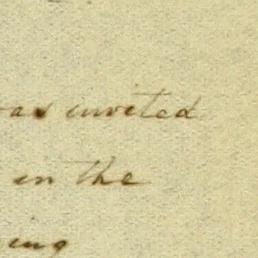 was invited
in the
ing